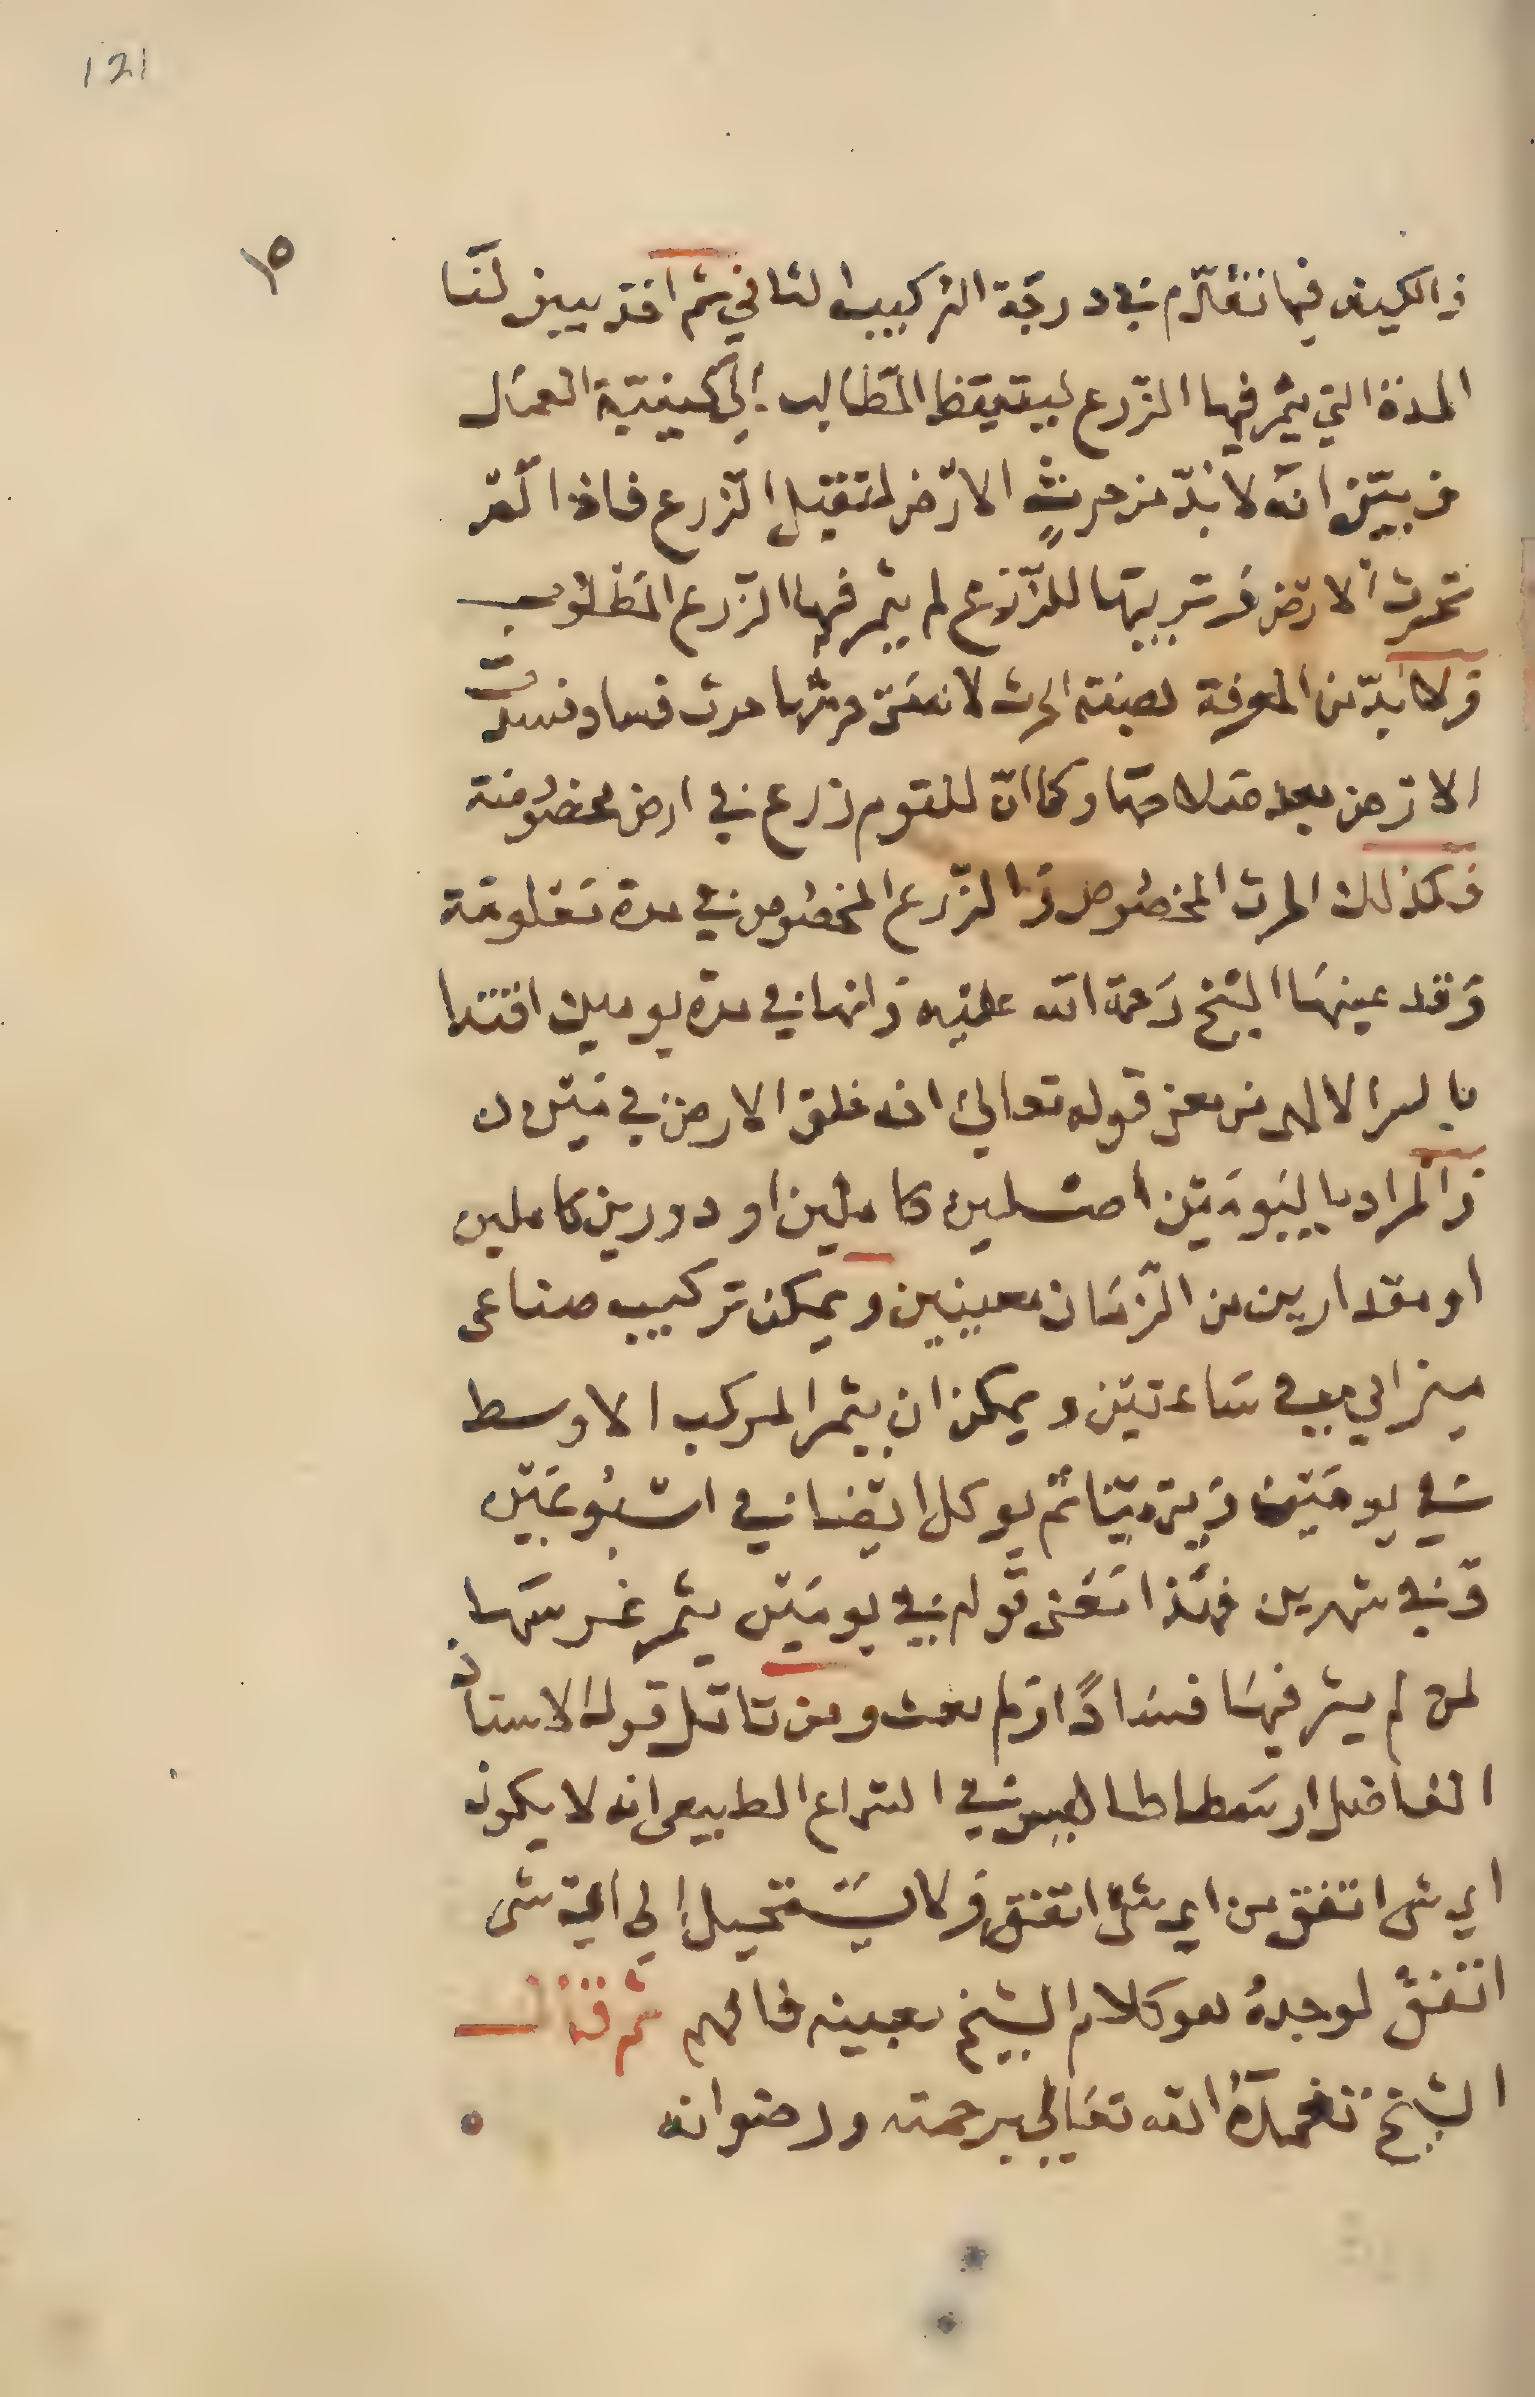 121
١٥
والكيف فيما تقدّم في درجة التركيب الثاني ثم اخذ يبين لنا
المدة التي يثمر فيها الزرع ليتيقظ الطالب إلى كيفيّة العمل
فبيّن انّه لا بدّ من حرثٍ الارض لتقبل الزرع فاذا لم
تحرث الارض وتربيتها للزرع لم يثمر فيها الزرع المطلوب
ولا بدّ من المعرفة بصفة الحرث لا نفس حرثها حرث فساد فتفسد
الارض بعد صلاحها وكما انّ للقوم زرع في ارض مخصوصة
فكذلك الحرث المخصوص والزرع المخصوص في مدة معلومة
وقد عينها الشيخ رحمة الله عليه وانها في مدة يومين اقتدا
بالسر الالهى من معنى قوله تعالى انه خلق الارض في يومين
والمراد باليومين اصلين كاملين او دورين كاملين
او مقدارين من الزمان معينين ويمكن تركيب صناعى
ميزاني في ساعتين ويمكن ان يثمر المركب الاوسط
في يومين يقينا ثم يوكل ايضا في اسبوعين
وفي شهرين فهذا معنى قوله في يومين يثمر غرسها
لمن لم يثر فيها فسادًا ومن تامل قول الاستاذ
الفاضل ارسطاطاليس في السماع الطبيعى انه لا يكون
اي شى اتفق من اي شى اتفق ولا يستحيل إلى اي شى
اتفق لوجده هو كلام الشيخ بعينه فافهم ثم قال
الشيخ تغمده الله تعالى برحمته ورضوانه